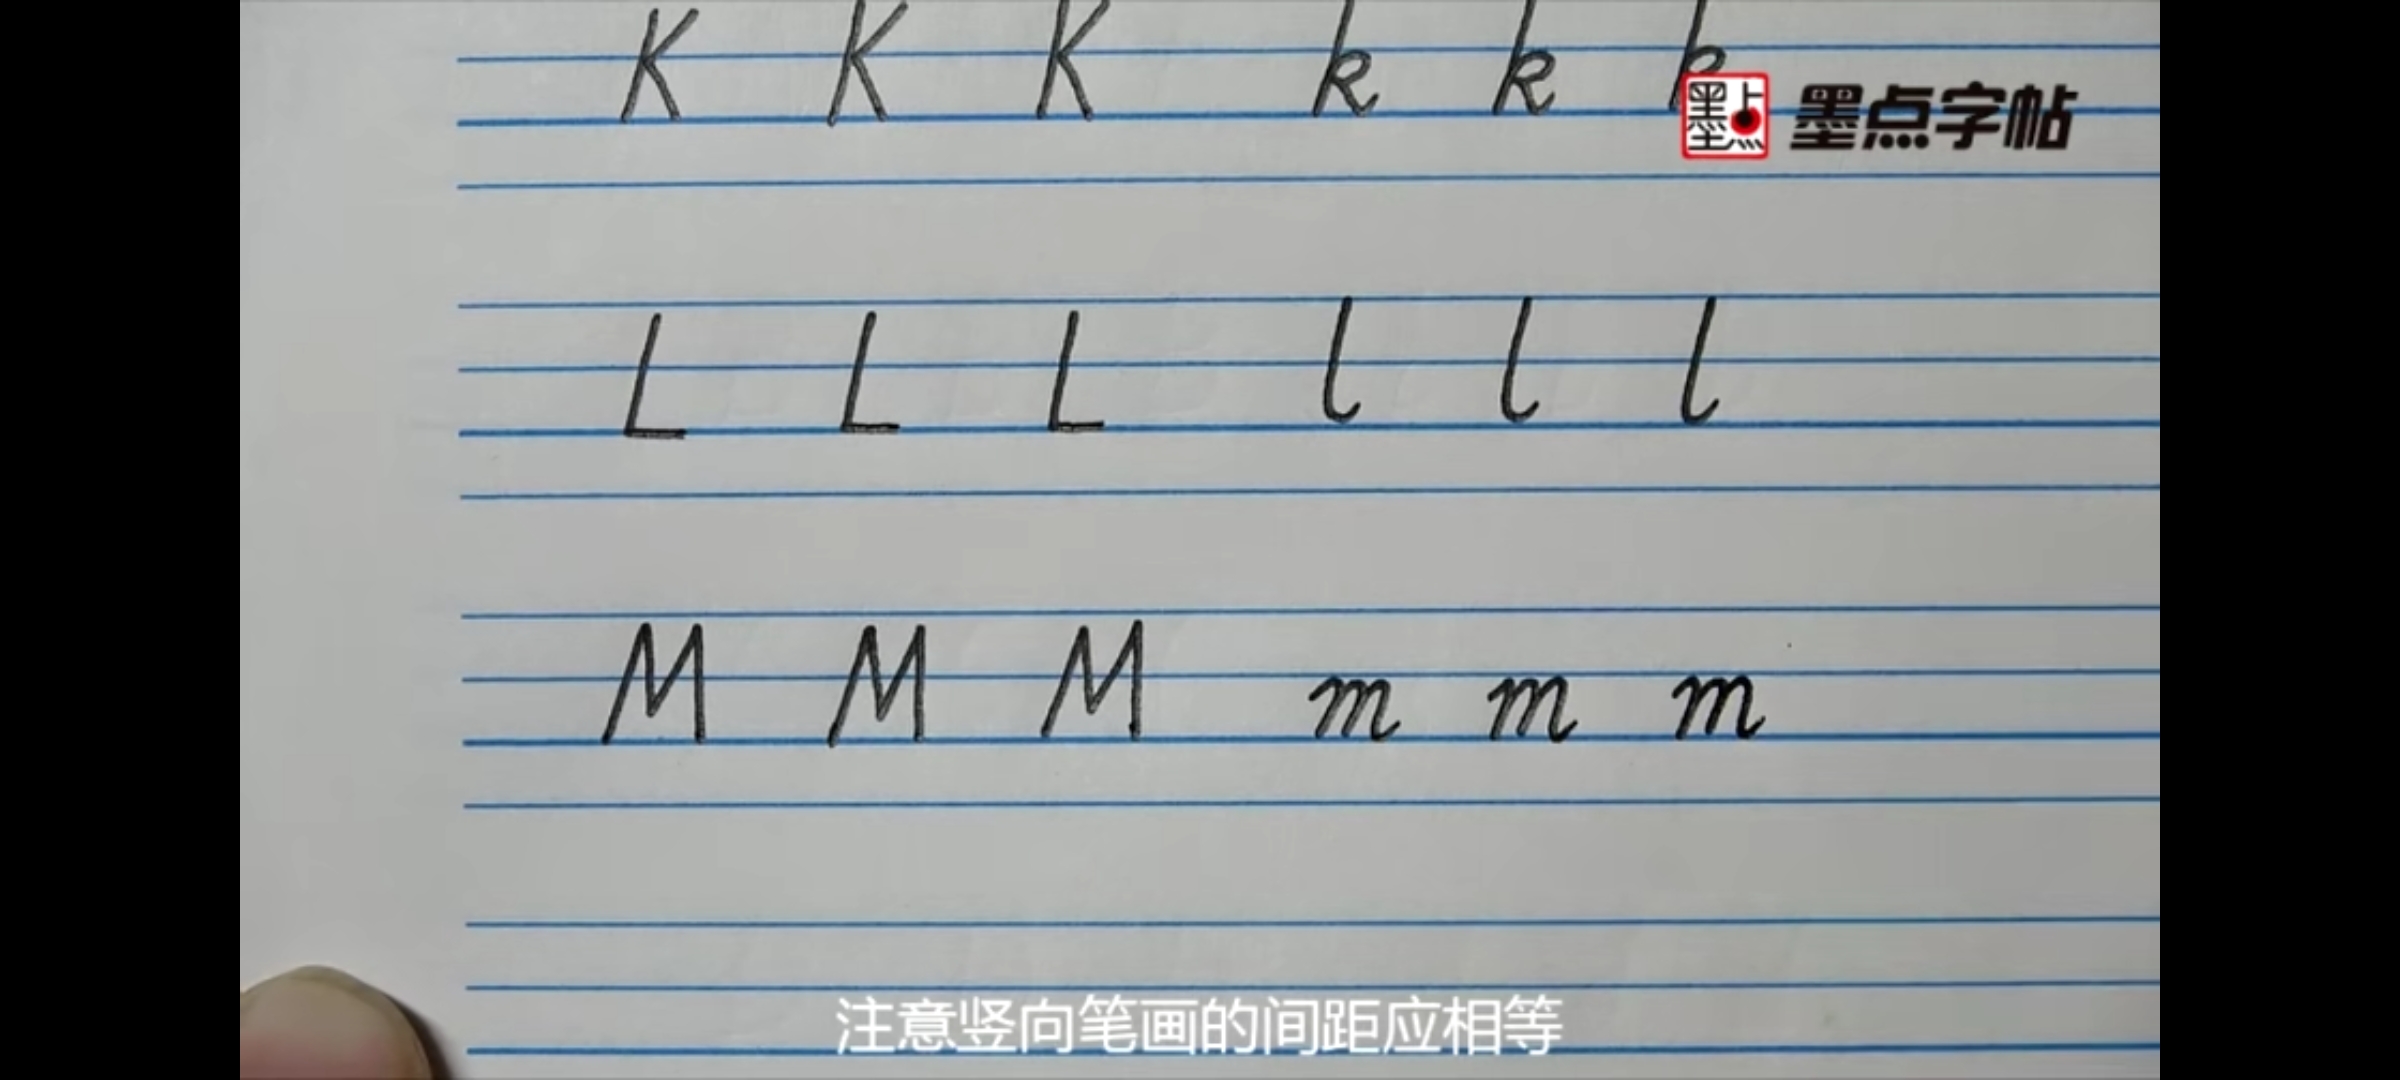 K K K k k k
墨点 墨点字帖
L L L l l l
M M M m m m
注意竖向笔画的间距应相等